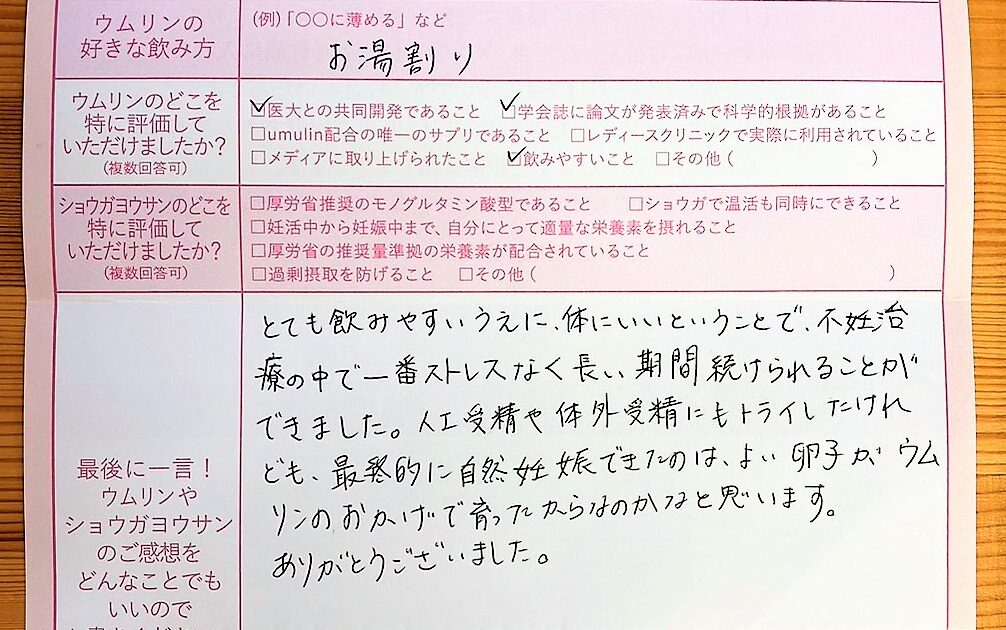 ウムリンの
好きな飲み方
(例)「〇〇に薄める」など
お湯割り
ウムリンのどこを
特に評価して
いただけましたか?
(複数回答可)
☑医大との共同開発であること ☑学会誌に論文が発表済みで科学的根拠があること
□umulin配合の唯一のサプリであること □レディースクリニックで実際に利用されていること
□メディアに取り上げられたこと ☑飲みやすいこと □その他( )
ショウガヨウサンのどこを
特に評価して
いただけましたか?
(複数回答可)
□厚労省推奨のモノグルタミン酸型であること □ショウガで温活も同時にできること
□妊活中から妊娠中まで、自分にとって適量な栄養素を摂れること
□厚労省の推奨量準拠の栄養素が配合されていること
□過剰摂取を防げること □その他( )
最後に一言!
ウムリンや
ショウガヨウサン
のご感想を
どんなことでも
いいので
とても飲みやすいうえに、体にいいということで、不妊治
療の中で一番ストレスなく長い期間続けられることが
できました。人工受精や体外受精にもトライしたけれ
ども、最終的に自然妊娠できたのは、よい卵子がウム
リンのおかげで育ったからなのかなと思います。
ありがとうございました。